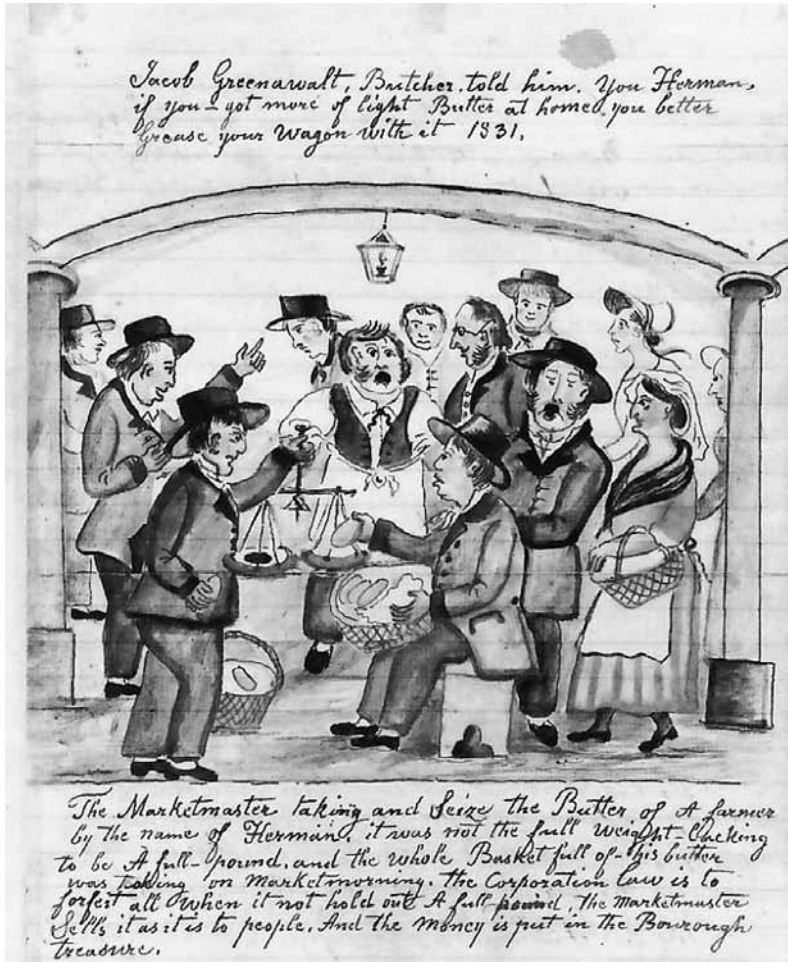 Jacob Greenawalt, Butcher, told him. You Herman,
if you-got more of light Butter at home, you better
Grease your Wagon with it 1831.
The Marketmaster taking and Seize the Butter, of A farmer
by the name of Herman, it was not the full weight-Lacking
to be A full-pound, and the whole Basket full of-his butter
was taking on Marketmorning. the Corporation law is to
forfeit all When it not hold out A full pound, the Marketmaster
Sells it as it is to people. And the Money is put in the Bourough
treasure.